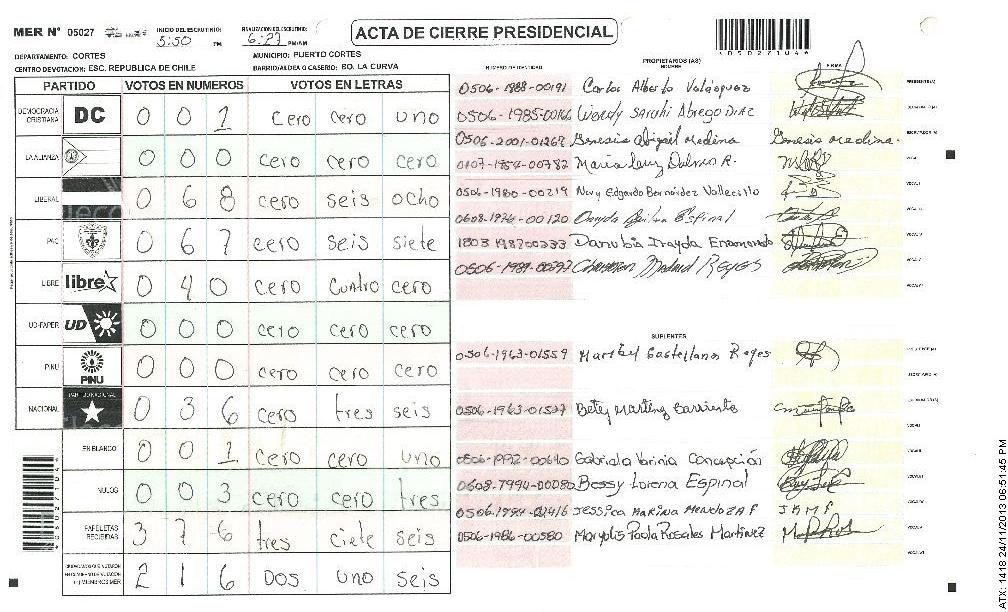 MER Nº 05027
INICIO DEL ESCRUTINIO: 5:50 PM
FINALIZACION DEL ESCRUTINIO: 6:27 PM/AM
ACTA DE CIERRE PRESIDENCIAL
DEPARTAMENTO: CORTES
MUNICIPIO: PUERTO CORTES
CENTRO DE VOTACION: ESC. REPUBLICA DE CHILE
BARRIO/ALDEA O CASERIO: BO. LA CURVA
PARTIDO VOTOS EN NUMEROS VOTOS EN LETRAS
DEMOCRACIA CRISTIANA DC 0 0 1 cero cero uno
LA ALIANZA 0 0 0 cero cero cero
LIBERAL 0 6 8 cero seis ocho
PAC 0 6 7 cero seis siete
LIBRE libre 0 4 0 cero cuatro cero
UD-FAPER UD 0 0 0 cero cero cero
PINU PINU 0 0 0 cero cero cero
NACIONAL PARTIDO NACIONAL 0 3 6 cero tres seis
EN BLANCO 0 0 1 cero cero uno
NULOS 0 0 3 cero cero tres
PAPELETAS RECIBIDAS 3 7 6 tres ciete seis
CIUDADANOS QUE VOTARON 2 1 6 DOS uno seis
NUMERO DE IDENTIDAD PROPIETARIOS (AS) NOMBRE FIRMA
0506-1988-00191 Carlos Alberto Velásquez
0506-1985-00166 Wendy Sarahi Abrego Diaz
0506-2001-01269 Genesis Abigail Medina Genesis Medina
0107-1954-00782 Maria R.
0506-1980-00219 Nery Edgardo Bernárdez Vallecillo
0608-1976-00120 Espinal
1803 198200333 Danubia Irayda Enamorado
Reyes
SUPLENTES
0506-1963-01559 Castellanos Reyes
0506-1963-01527 Betty Martinez Barriento
0506-1992-00640 Gabriela Varinia Concepción
0608-7994-00080 Bessy Lorena Espinal
Jessica Marina Mendoza P JAMP
0506-1986-00580 Marylis Paola Rosales Martinez
05027104
ATX: 1418 24/11/2013 06:51:45 PM